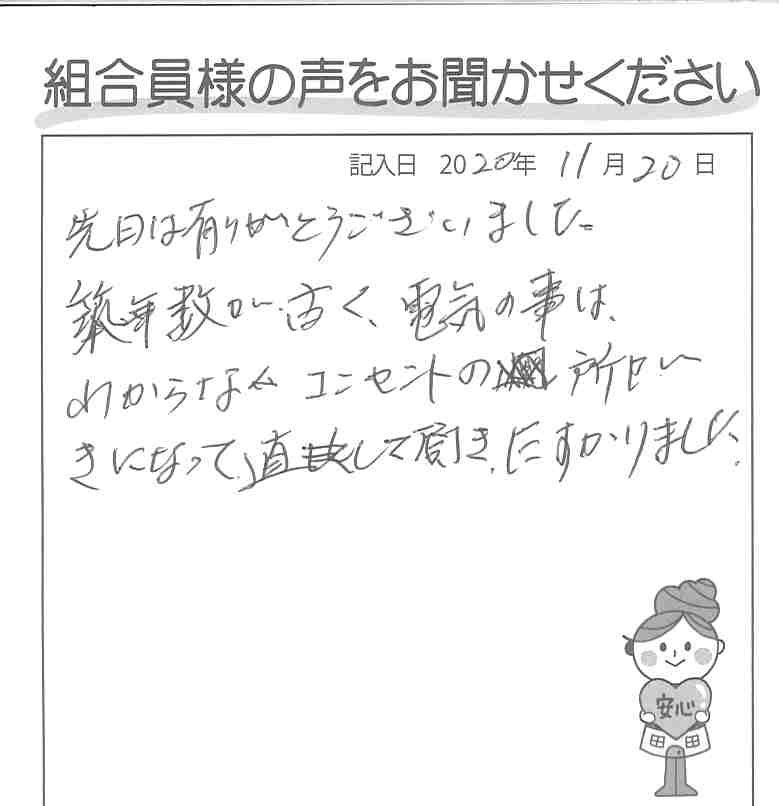 組合員様の声をお聞かせください
記入日 2020年 11月20日
先日は有りがとうございました。
築年数が古く、電気の事は、
わからなく コンセントの 所が
きになって、直して頂き、たすかりました。
安心